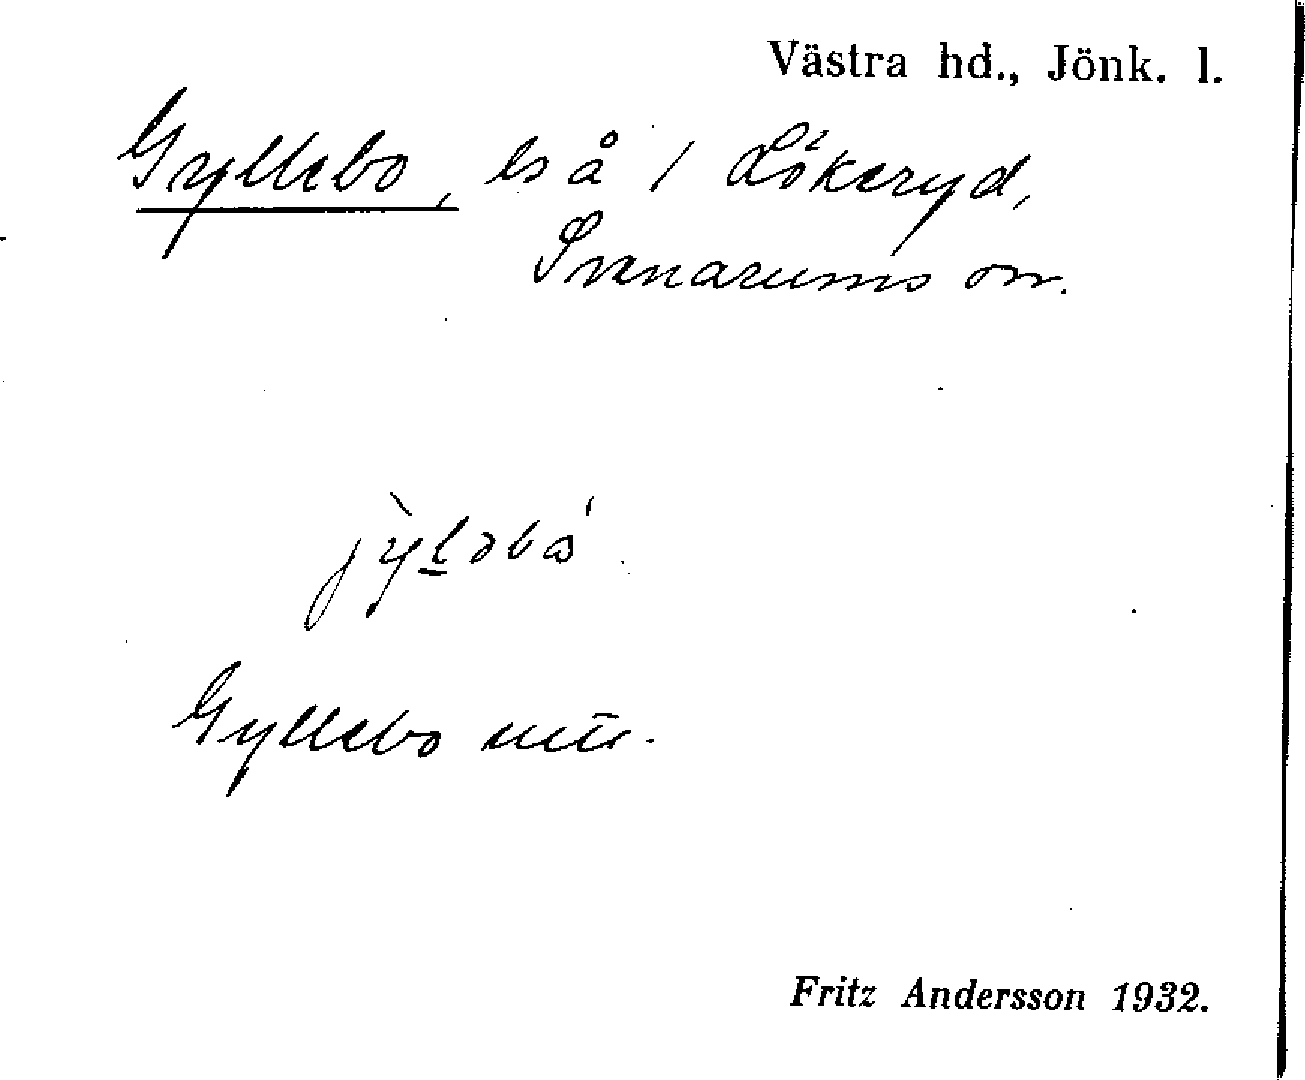 Västra hd., Jönk. l.
Gyllebo, ls å 1 Lökeryd,
Svenarums sn.
Gyllebo
Fritz Andersson 1932.